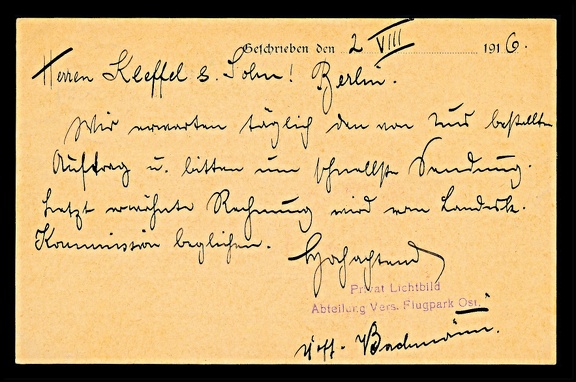 Geschrieben den 2 VIII 1916.
Herren Kleffel & Sohn! Berlin.
Wir erwarten täglich den von uns bestellten
Auftrag u. bitten um schnellste Sendung.
Letzt erwähnte Rechnung wird von
Kommission beglichen.
Hochachtend
Privat Lichtbild
Abteilung Vers. Flugpark Ost.
Uoff. Bachmann.